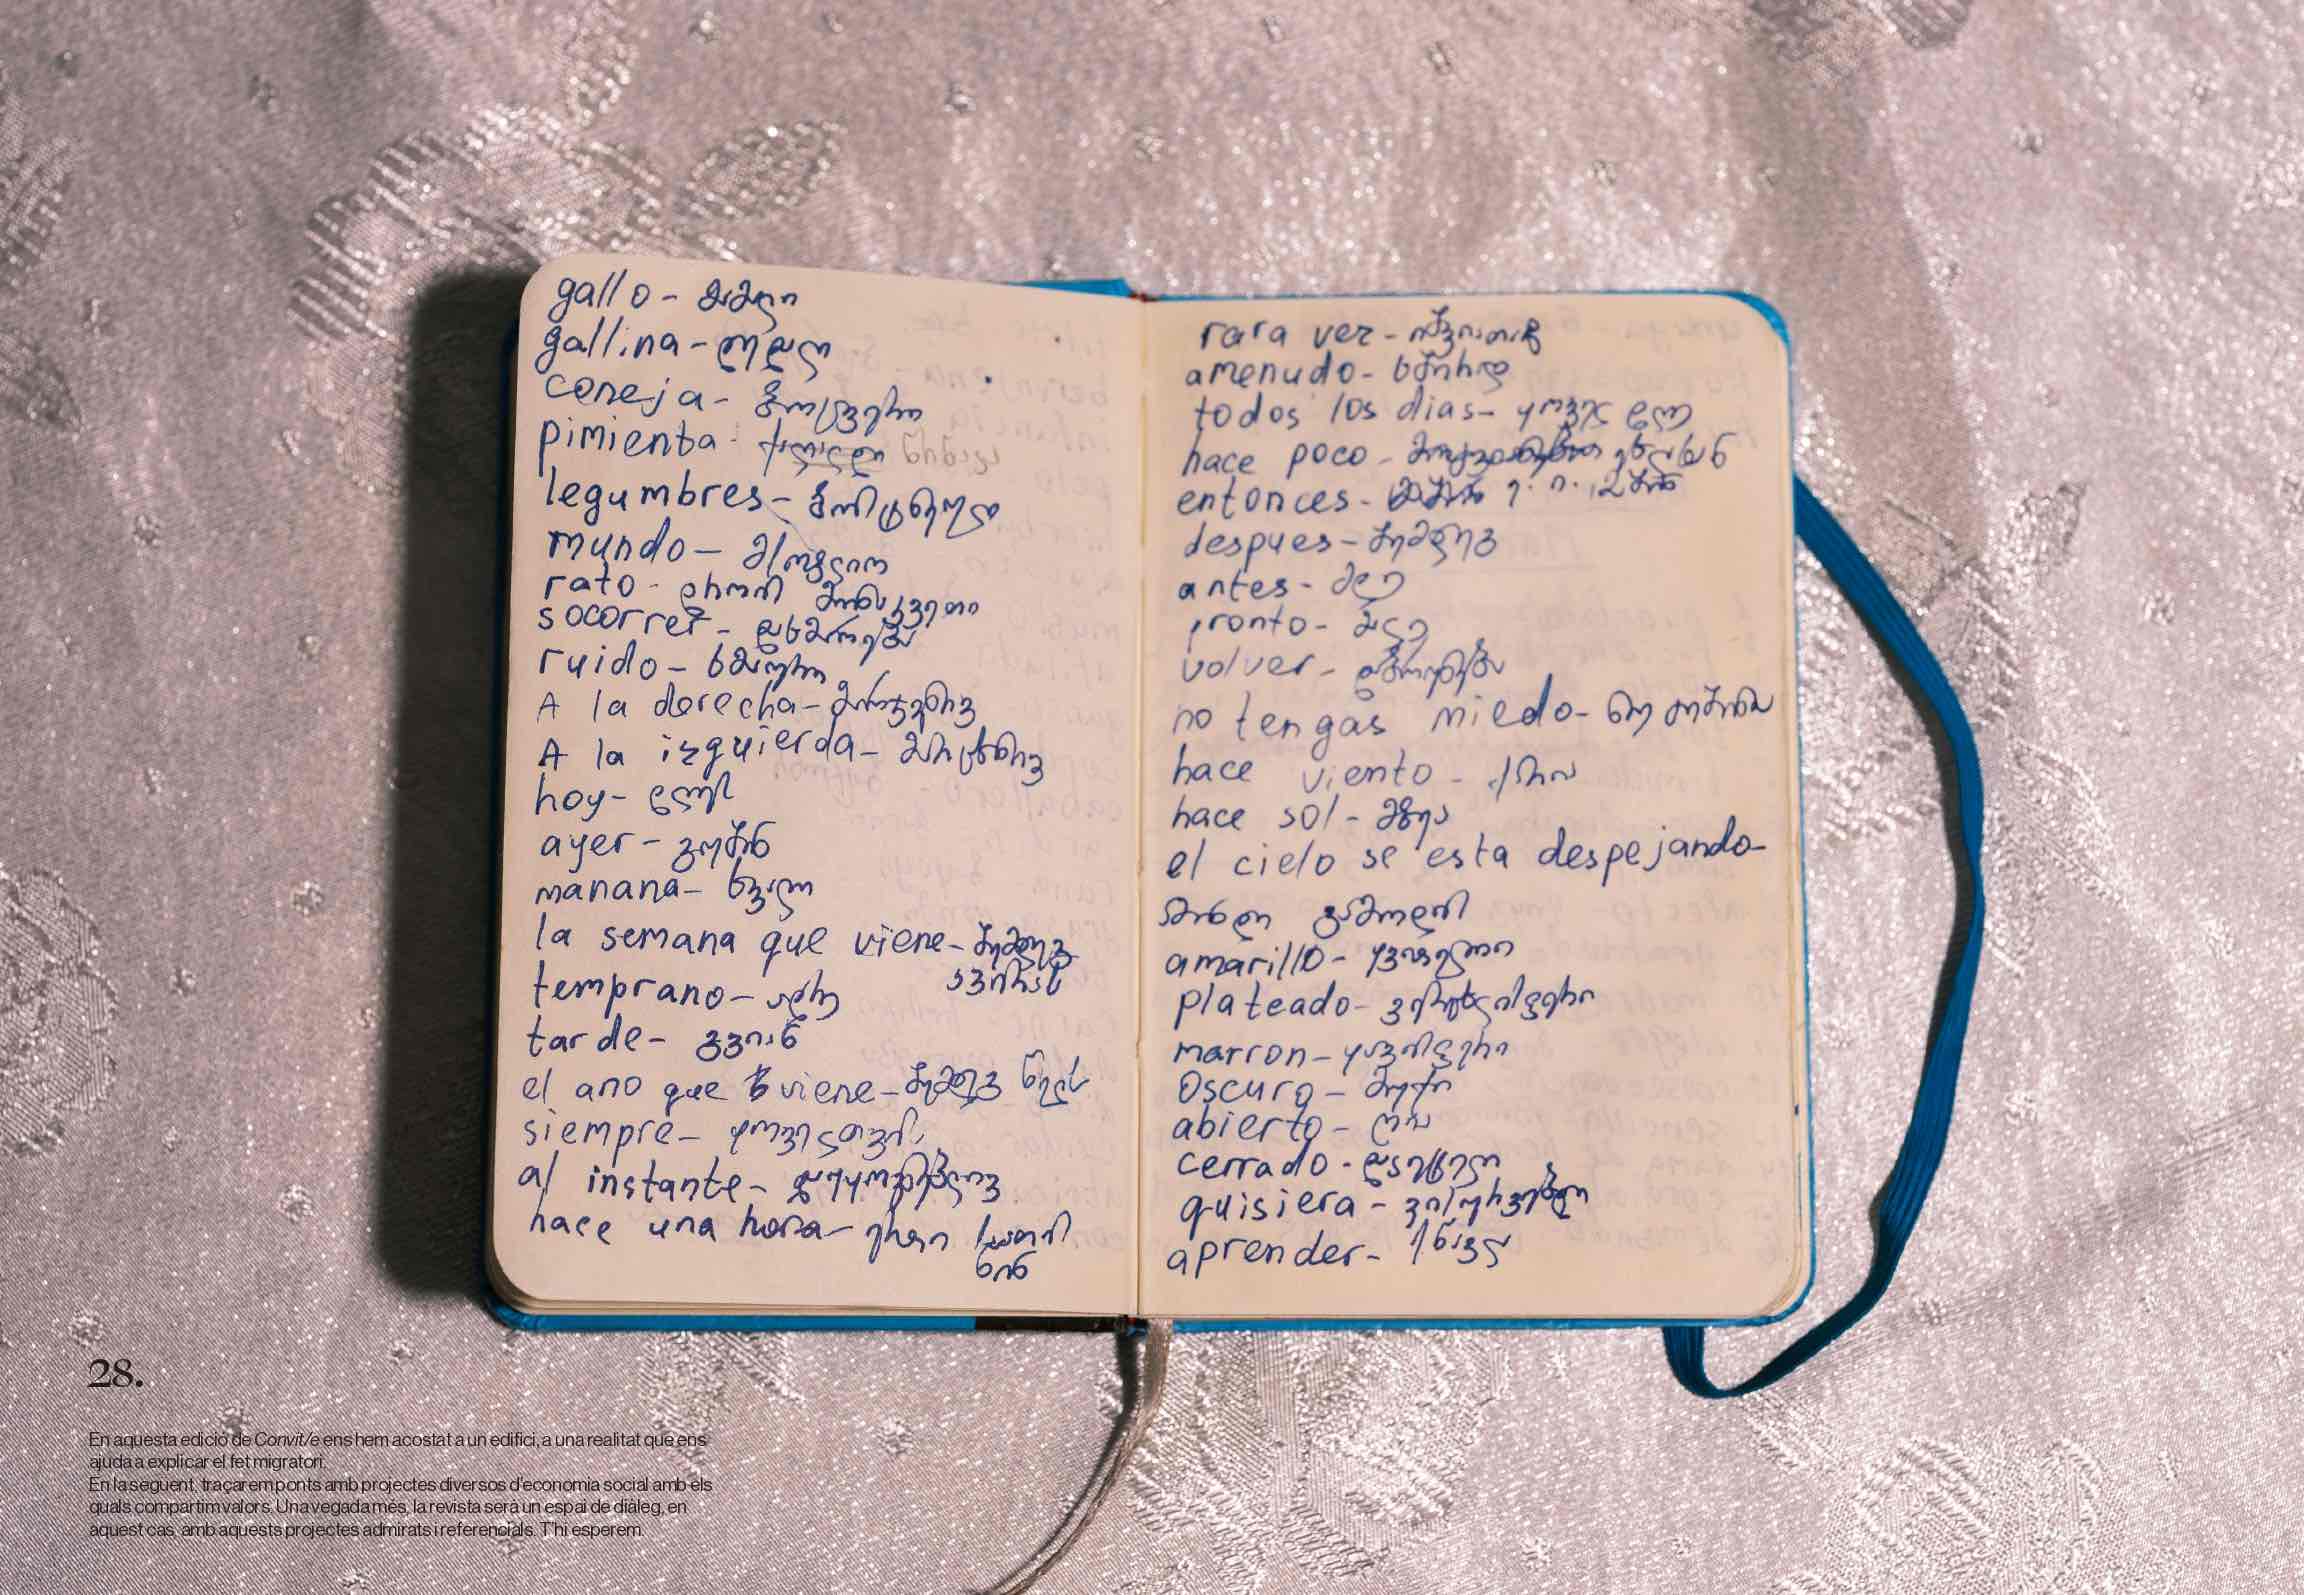 gallo - მამალი
gallina - დედალი
coneja - ბოცვერი
pimienta -
legumbres - ბოსტნეული
mundo - მსოფლიო
rato - დროის მონაკვეთი
socorrer - დახმარება
ruido - ხმაური
A la derecha - მარჯვნივ
A la izguierda - მარცხნივ
hoy - დღეს
ayer - გუშინ
manana - ხვალ
la semana que viene - შემდეგ
კვირას
temprano - ადრე
tarde - გვიან
el ano que viene - შემდეგ წელს
siempre - ყოველთვის
al instante - დაუყოვნებლივ
hace una hora - ერთი საათის
წინ
rara vez - იშვიათად
amenudo - ხშირად
todos los dias - ყოველ დღე
hace poco - ახლახან
entonces - მაშინ
despues - შემდეგ
antes - მდე
pronto - მალე
volver - დაბრუნება
no tengas miedo - ნუ გეშინია
hace viento - ქარია
hace sol - მზეა
el cielo se esta despejando-
ამინდი გამოდის
amarillo - ყვითელი
plateado - ვერცხლისფერი
marron - ყავისფერი
oscuro - მუქი
abierto - ღია
cerrado - დაკეტილი
quisiera - ვისურვებდი
aprender - სწავლა
28.
En aquesta edició de Convit/e ens hem acostat a un edifici, a una realitat que ens
ajuda a explicar el fet migratori.
En la següent, traçarem ponts amb projectes diversos d'economia social amb els
quals compartim valors. Una vegada més, la revista serà un espai de diàleg, en
aquest cas, amb aquests projectes admirats i referencials. T'hi esperem.